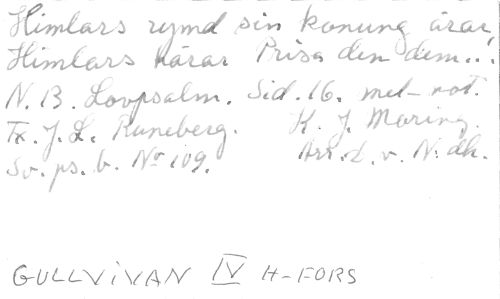 Himlars rymd sin konung ärar,
Himlars härar Prisa den dem...!
N. B. Lovpsalm. Sid. 16. mel-not.
Tx. J. L. Runeberg. K. J. Moring.
Sv. ps. b. No 109. Arr. d. v. N. dk.
GULLVIVAN IV H-FORS